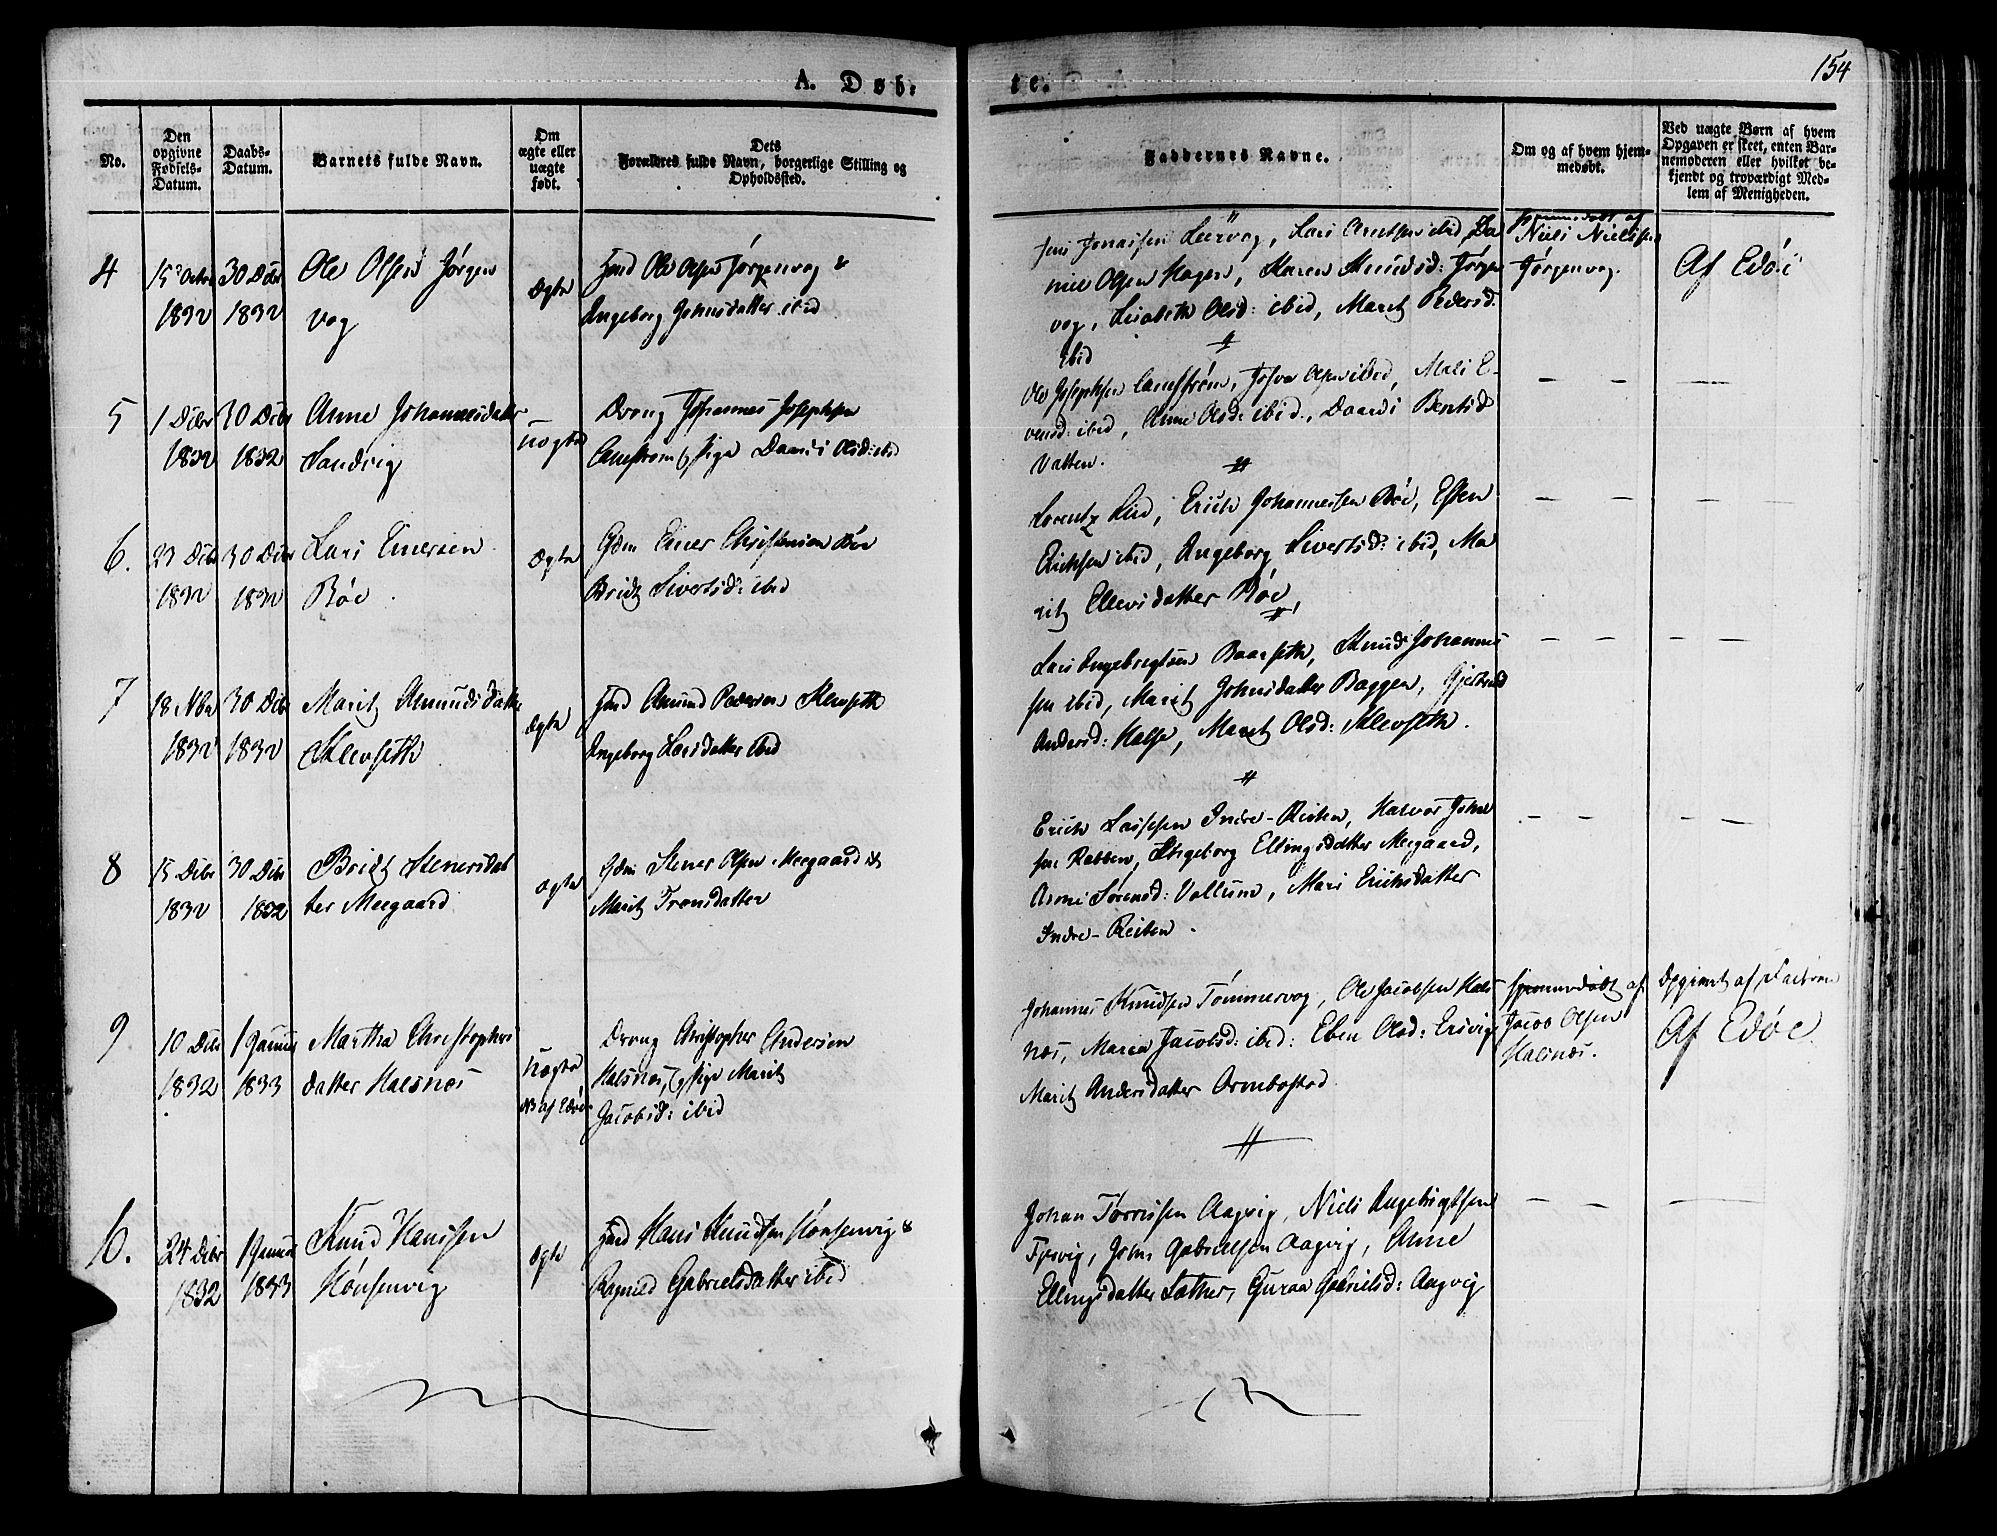 154
A. Døb-
te.
No.
Den
opgivne
Fødsels-
Datum.
Daabs-
Datum.
Barnets fulde Navn.
Om
ægte eller
uægte
født.
Dets
Forældres fulde Navn, borgerlige Stilling og
Opholdssted.
Faddernes Navne.
Om og af hvem hjem-
medøbt.
Ved uægte Børn af hvem
Opgaven er skeet, enten Bar-
nemoderen eller hvilket be-
kjendt og troværdigt Med-
lem af Menigheden.
4
15 Octr
1832
30 Dcbr
1832
Ole Olsen Jørgen
vog
Ægte
Ole Olsen Jørgenvog &
Ingeborg Johnsdatter ibid
Jens Jonassen Leervog, Lars ibid, Da
niel Olsen Hagen, Karen Knudsd: Jørgen
vog, Lisabeth Olsd: ibid, Marit Pedersd:
ibid
hjemmedøbt af
Niels Nielsen
Jørgenvog.
Af Edøe
5
1 Dcbr
1832
30 Dcbr
1832
Anne Johannesdatter
Sandvig
Uægte
Dreng Johannes Josephsen
og Pige Olsd: ibid
Ole Josephsen Josva Olsen ibid, Mali E-
vensd: ibid, Anne Olsd: ibid, Bentsd
Vatten.
6.
23 Dcbr
1832
30 Dcbr
1832
Lars Einersen
Bøe.
Ægte
Gdm Einer Christensen Bøe
Bridt Sivertsd: ibid
Lorentz Erich Johannessen Bøe, Esten
Erichsen ibid, Ingeborg Sivertsd: ibid, Ma
rit Ellevsdatter Bøe,
7
18 Nbr
1832
30 Dcbr
1832
Marit Amundsdatter
Klevseth
Ægte
Amund Pedersen Klevseth
Ingeborg Larsdatter ibid
Lars Ingebrigtsen Baarseth, Knud Johannes
sen ibid, Marit Johnsdatter Baggen, Gjertrud
Andersd: Halse, Marit Olsd: Klevseth.
8
15 Dcbr
1832
30 Dcbr
1832
Bridt Stenersdat
ter Meegaard
Ægte
Gdm Stener Olsen Meegaard &
Marit Tronsdatter
Erich Larssen Indre-Reiten, Halvor John
sen Rabben, Ingeborg Ellingsdatter Meegaard,
Anne Sørensd: Vollum, Mari Erichsdatter
Indre-Reiten.
9
10 Dcbr
1832
1 Januar
1833
Martha Christophers
datter Halsnæs
Uægte
NB af Edøe
Dreng Christopher Andersen
Halsnæs, og Pige Marit
Jacobsd: ibid
Johannes Knudsen Tømmervog, Ole Jacobsen Hals
næs, Maren Jacobsd: ibid: Eben Olsd: Ersvig
Marit Andersdatter Ormbostad.
hjemmedøbt af
Jacob Olsen
Halsnæs.
Opgivet af
Af Edøe
10.
24 Dcbr
1832
1 Januar
1833
Knud Hanssen
Hønsenvig
Ægte
Hans Knudsen Hønsenvig &
Ragnild Gabrielsdatter ibid
Johan Tørrissen Aagvig, Niels Ingebrigtsen
John Gabrielsen Aagvig, Anne
Ellingsdatter Guraa Gabrielsd: Aagvig